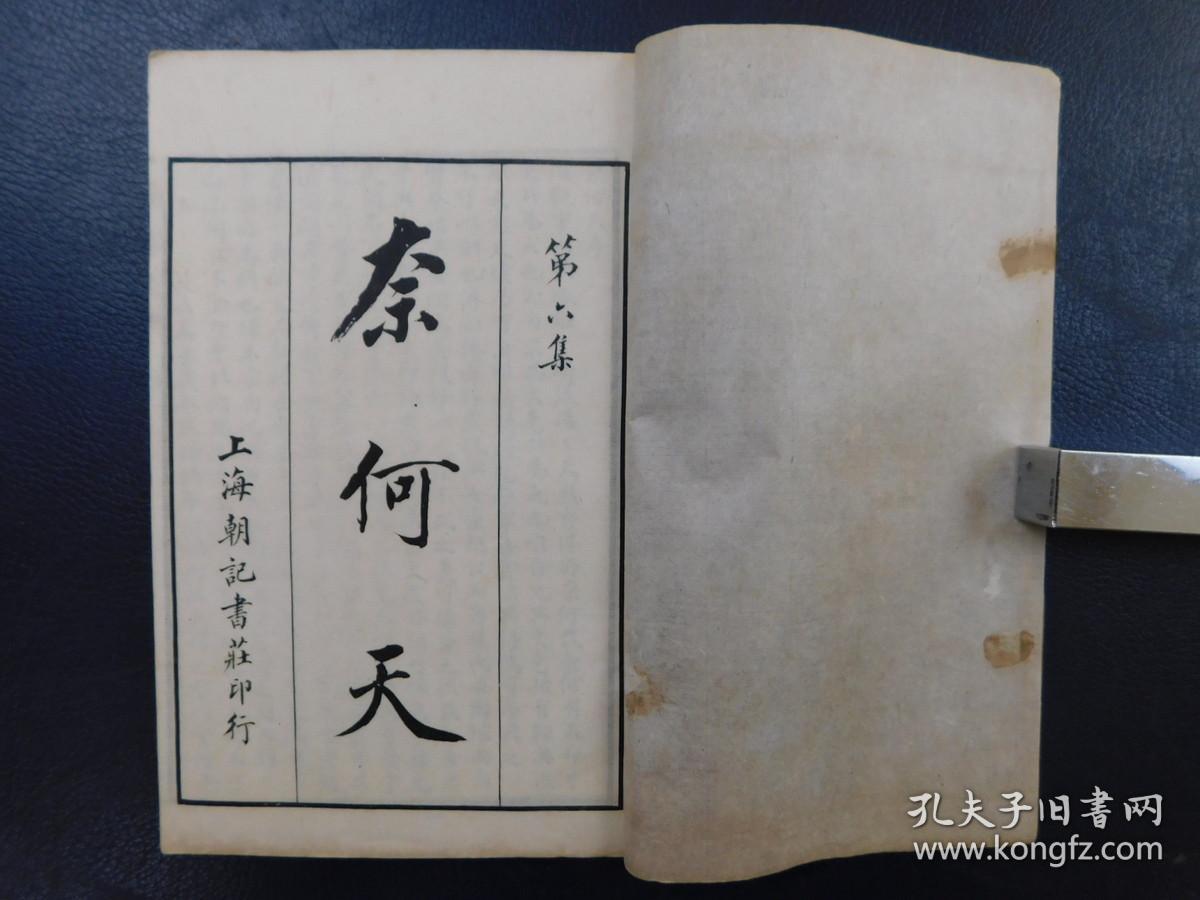 第六集
奈何天
上海朝記書莊印行
孔夫子旧書网
www.kongfz.com